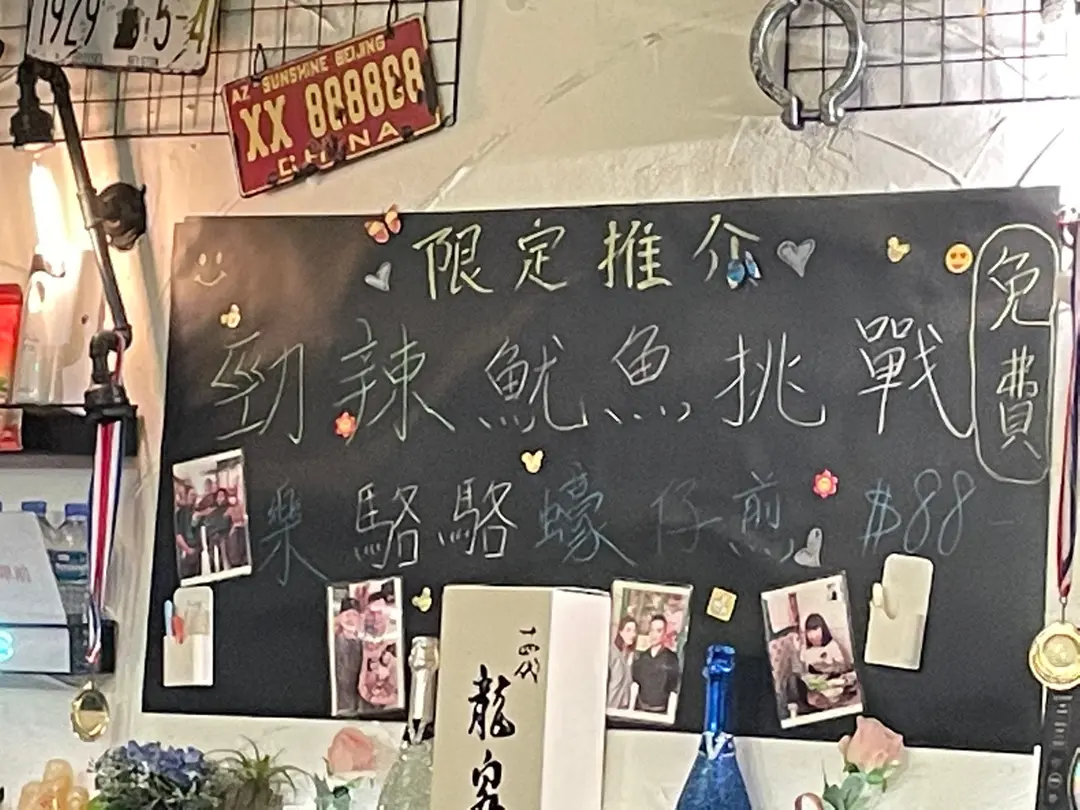 AZ - SUNSHINE BEIJING
XX 888888
CHINA
限定推介
勁辣魷魚挑戰
免費
樂駱駱蠔仔煎 $88
十四代
龍泉